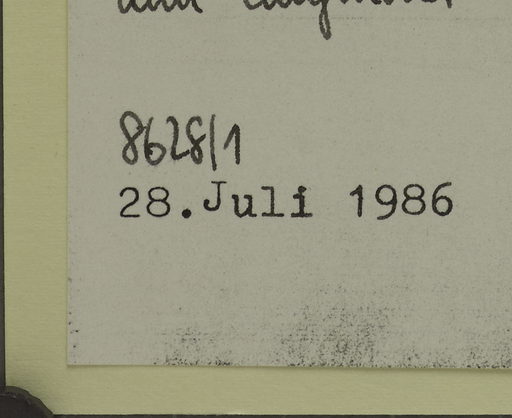 und
8628/1
28.Juli 1986